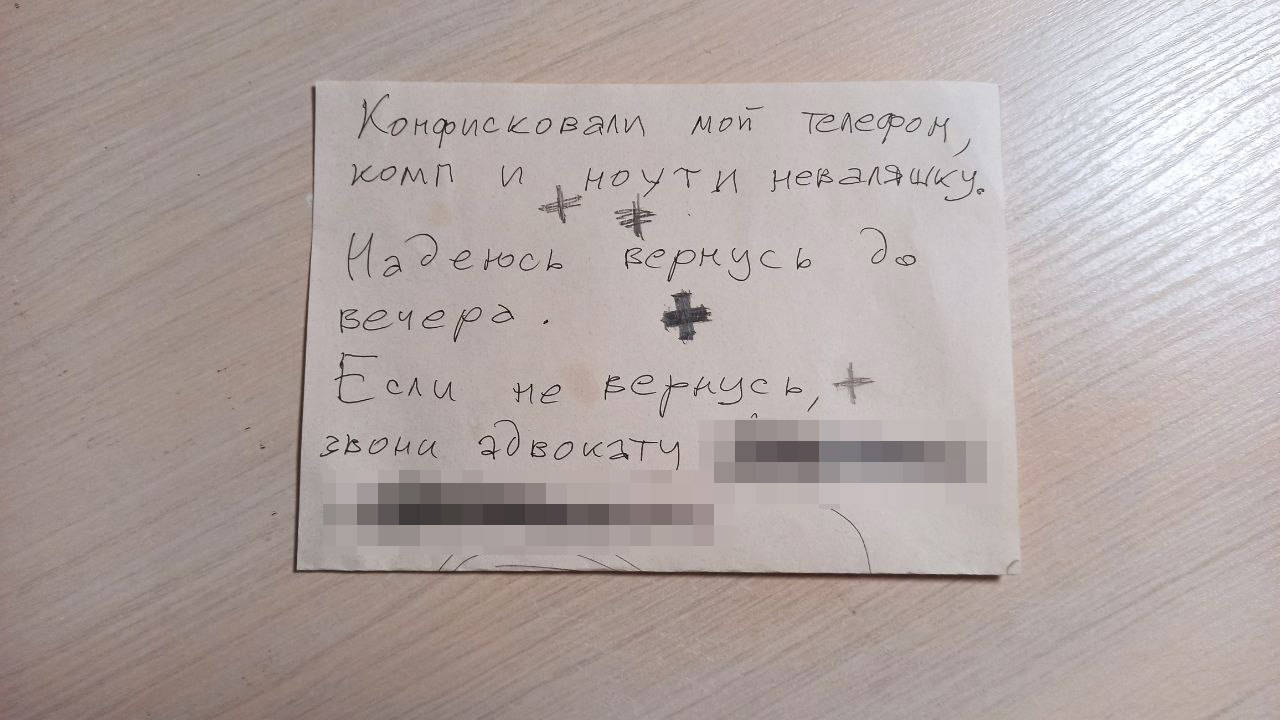 Конфисковали мой телефон,
комп и ноут и неваляшку.
Надеюсь вернусь до
вечера.
Если не вернусь,
звони адвокату